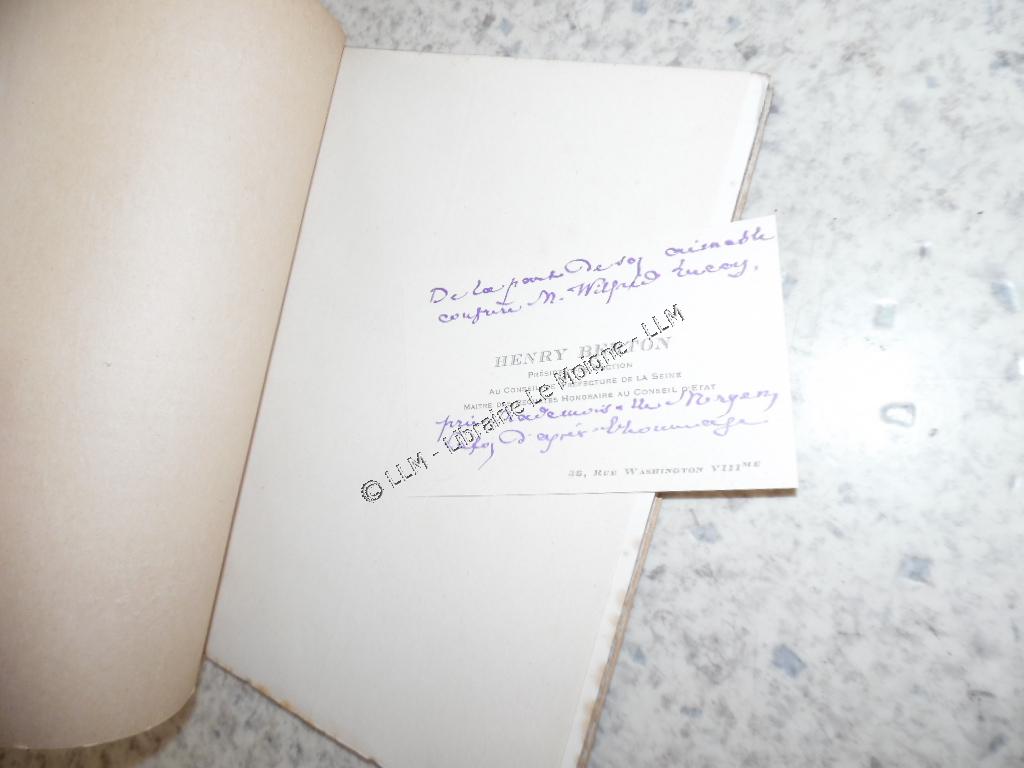 De la part de son aimable
confrère M. Wilfrid Lucay,
HENRY BERTON
PRÉSIDENT DE SECTION
AU CONSEIL DE PRÉFECTURE DE LA SEINE
MAITRE DES REQUÊTES HONORAIRE AU CONSEIL D'ÉTAT
prie Mademoiselle
d'agréer l'hommage
35, RUE WASHINGTON VIIIME
© LLM - Librairie Le Moigne - LLM